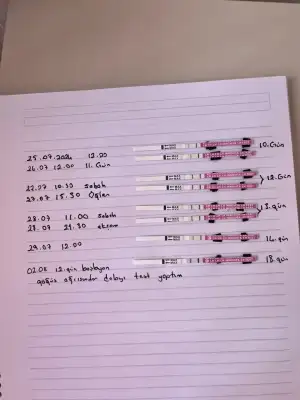 25.07.2024 12.20 10.Gün
26.07 12.00 11.Gün
27.07 10.30 sabah 12.Gün
27.07 15.30 Öğlen
28.07 11.00 sabah 13.gün
28.07 21.30 akşam
29.07 12.00 14.gün
02.08 18.gün
göğüs ağrısından dolayı test yaptım